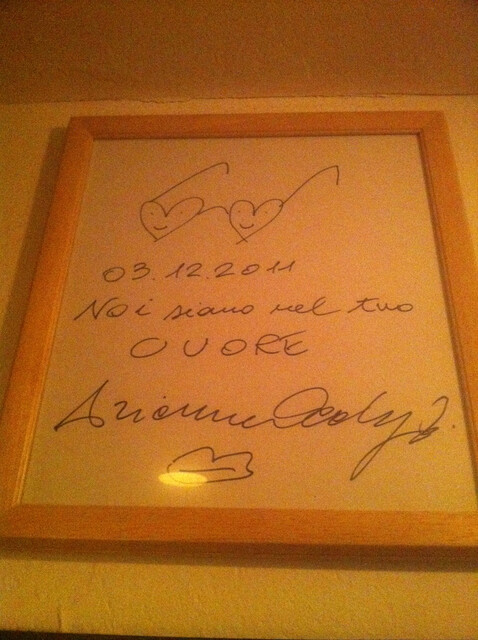 03.12.2011
Noi siamo nel tuo
CUORE
Arianna